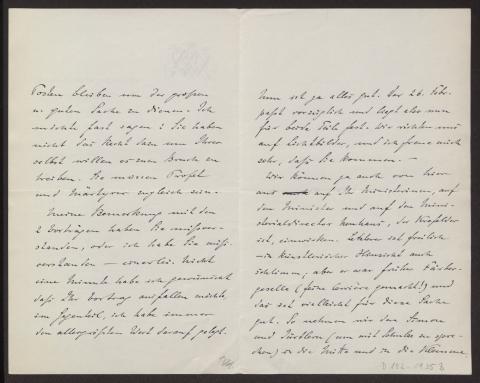 Posten bleiben um der grossen
u. guten Sache zu dienen. Ich
möchte fast sagen: Sie haben
nicht das Recht hier um Ihrer
selbst willen einen Bruch zu
treiben. Sie müssen Profet
und Märtyrer zugleich sein.
Meine Bemerkung mit den
2 Vorträgen haben Sie missver-
standen, oder ich habe Sie miss-
verstanden – einerlei. Nicht
eine Minute habe ich gewünscht
dass Ihr Vortrag ausfallen möchte,
im Gegenteil, ich habe immer
den allergrössten Wert darauf gelegt.
Nun ist ja alles gut. Der 26. Febr.
passt vorzüglich und liegt also nun
für beide Teile fest. Wir richten uns
auf Lichtbilder, und ich freue mich
sehr, dass Sie kommen. –
Wir können ja auch von hier
aus auf Ministerium, auf
den Minister und auf den Mini-
sterialdirector Neuhaus, der
ist, einwirken. Letzterer ist freilich
in künstlerischer Hinsicht auch
schlimm; aber er war früher
geselle (feine Carrière gemacht!) und
das ist vielleicht für diese Sache
gut. So nehmen wir den Simon
und Dürllern (um mit Schulze zu spre-
chen) in die Mitte und in die Klemme.
D 182-1935 b